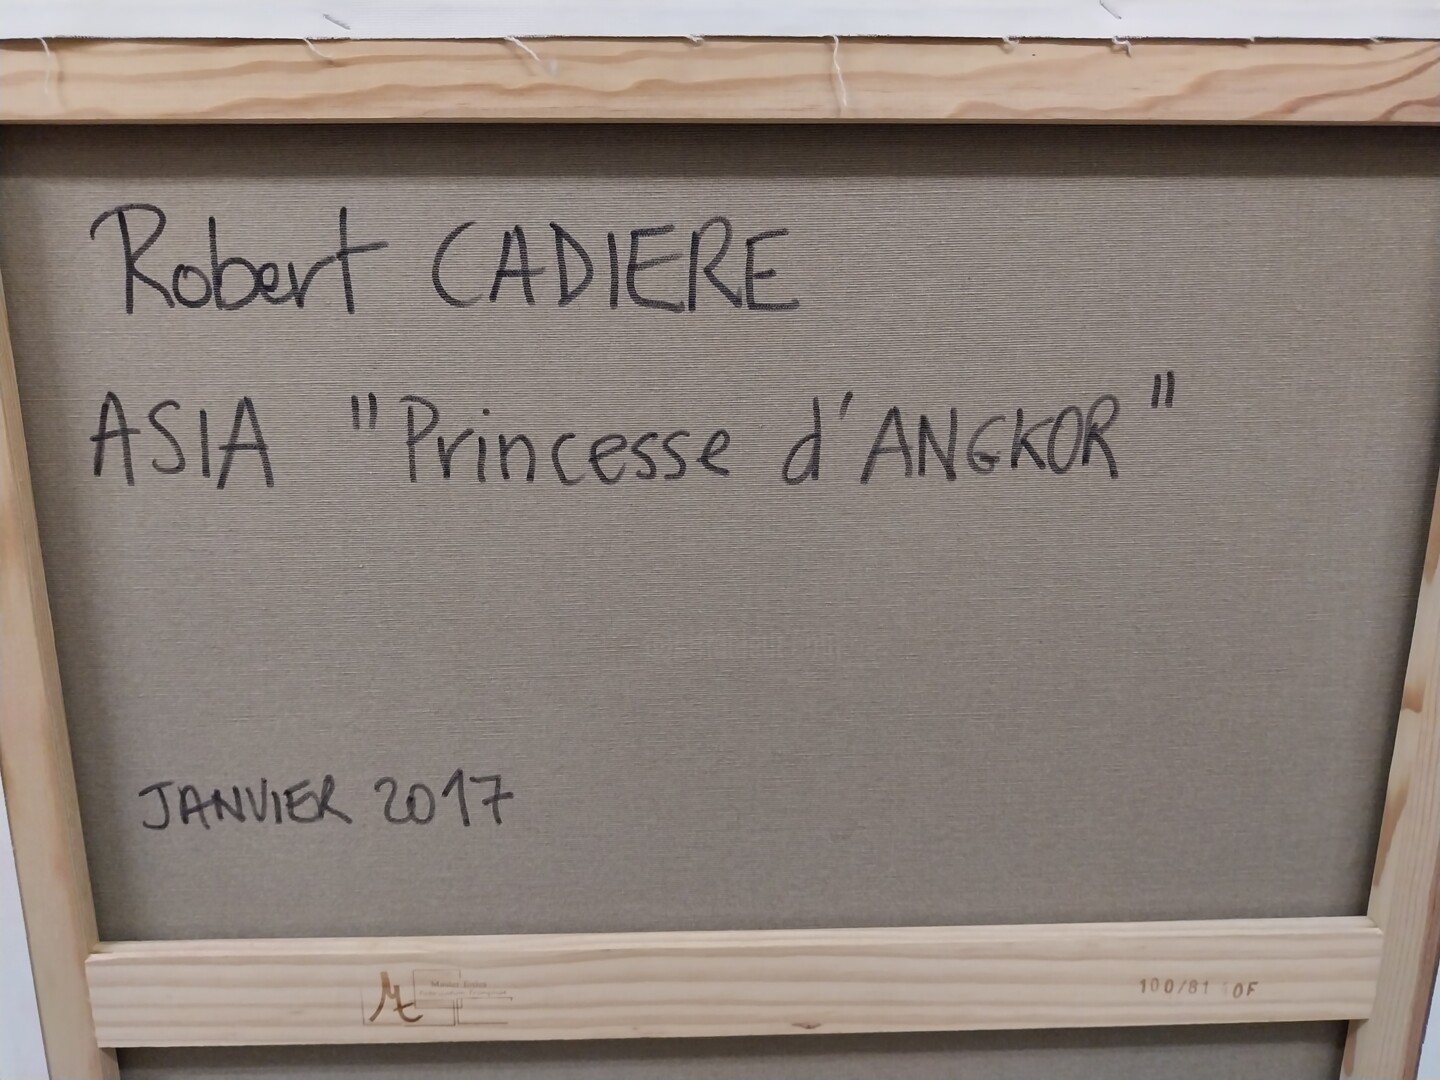 Robert CADIERE
ASIA "Princesse d'ANGKOR"
JANVIER 2017
Mt
100/81 0F